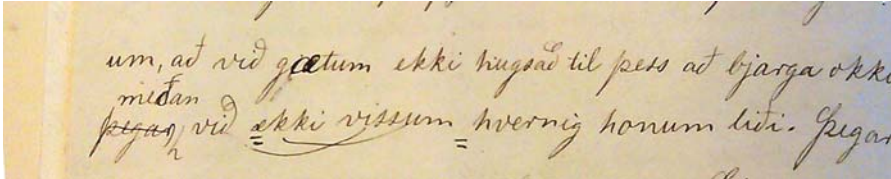 um, að við gætum ekki hugsað til þess að bjarga okk
meðan
þegar við ekki vissum hvernig honum liði. Þegar